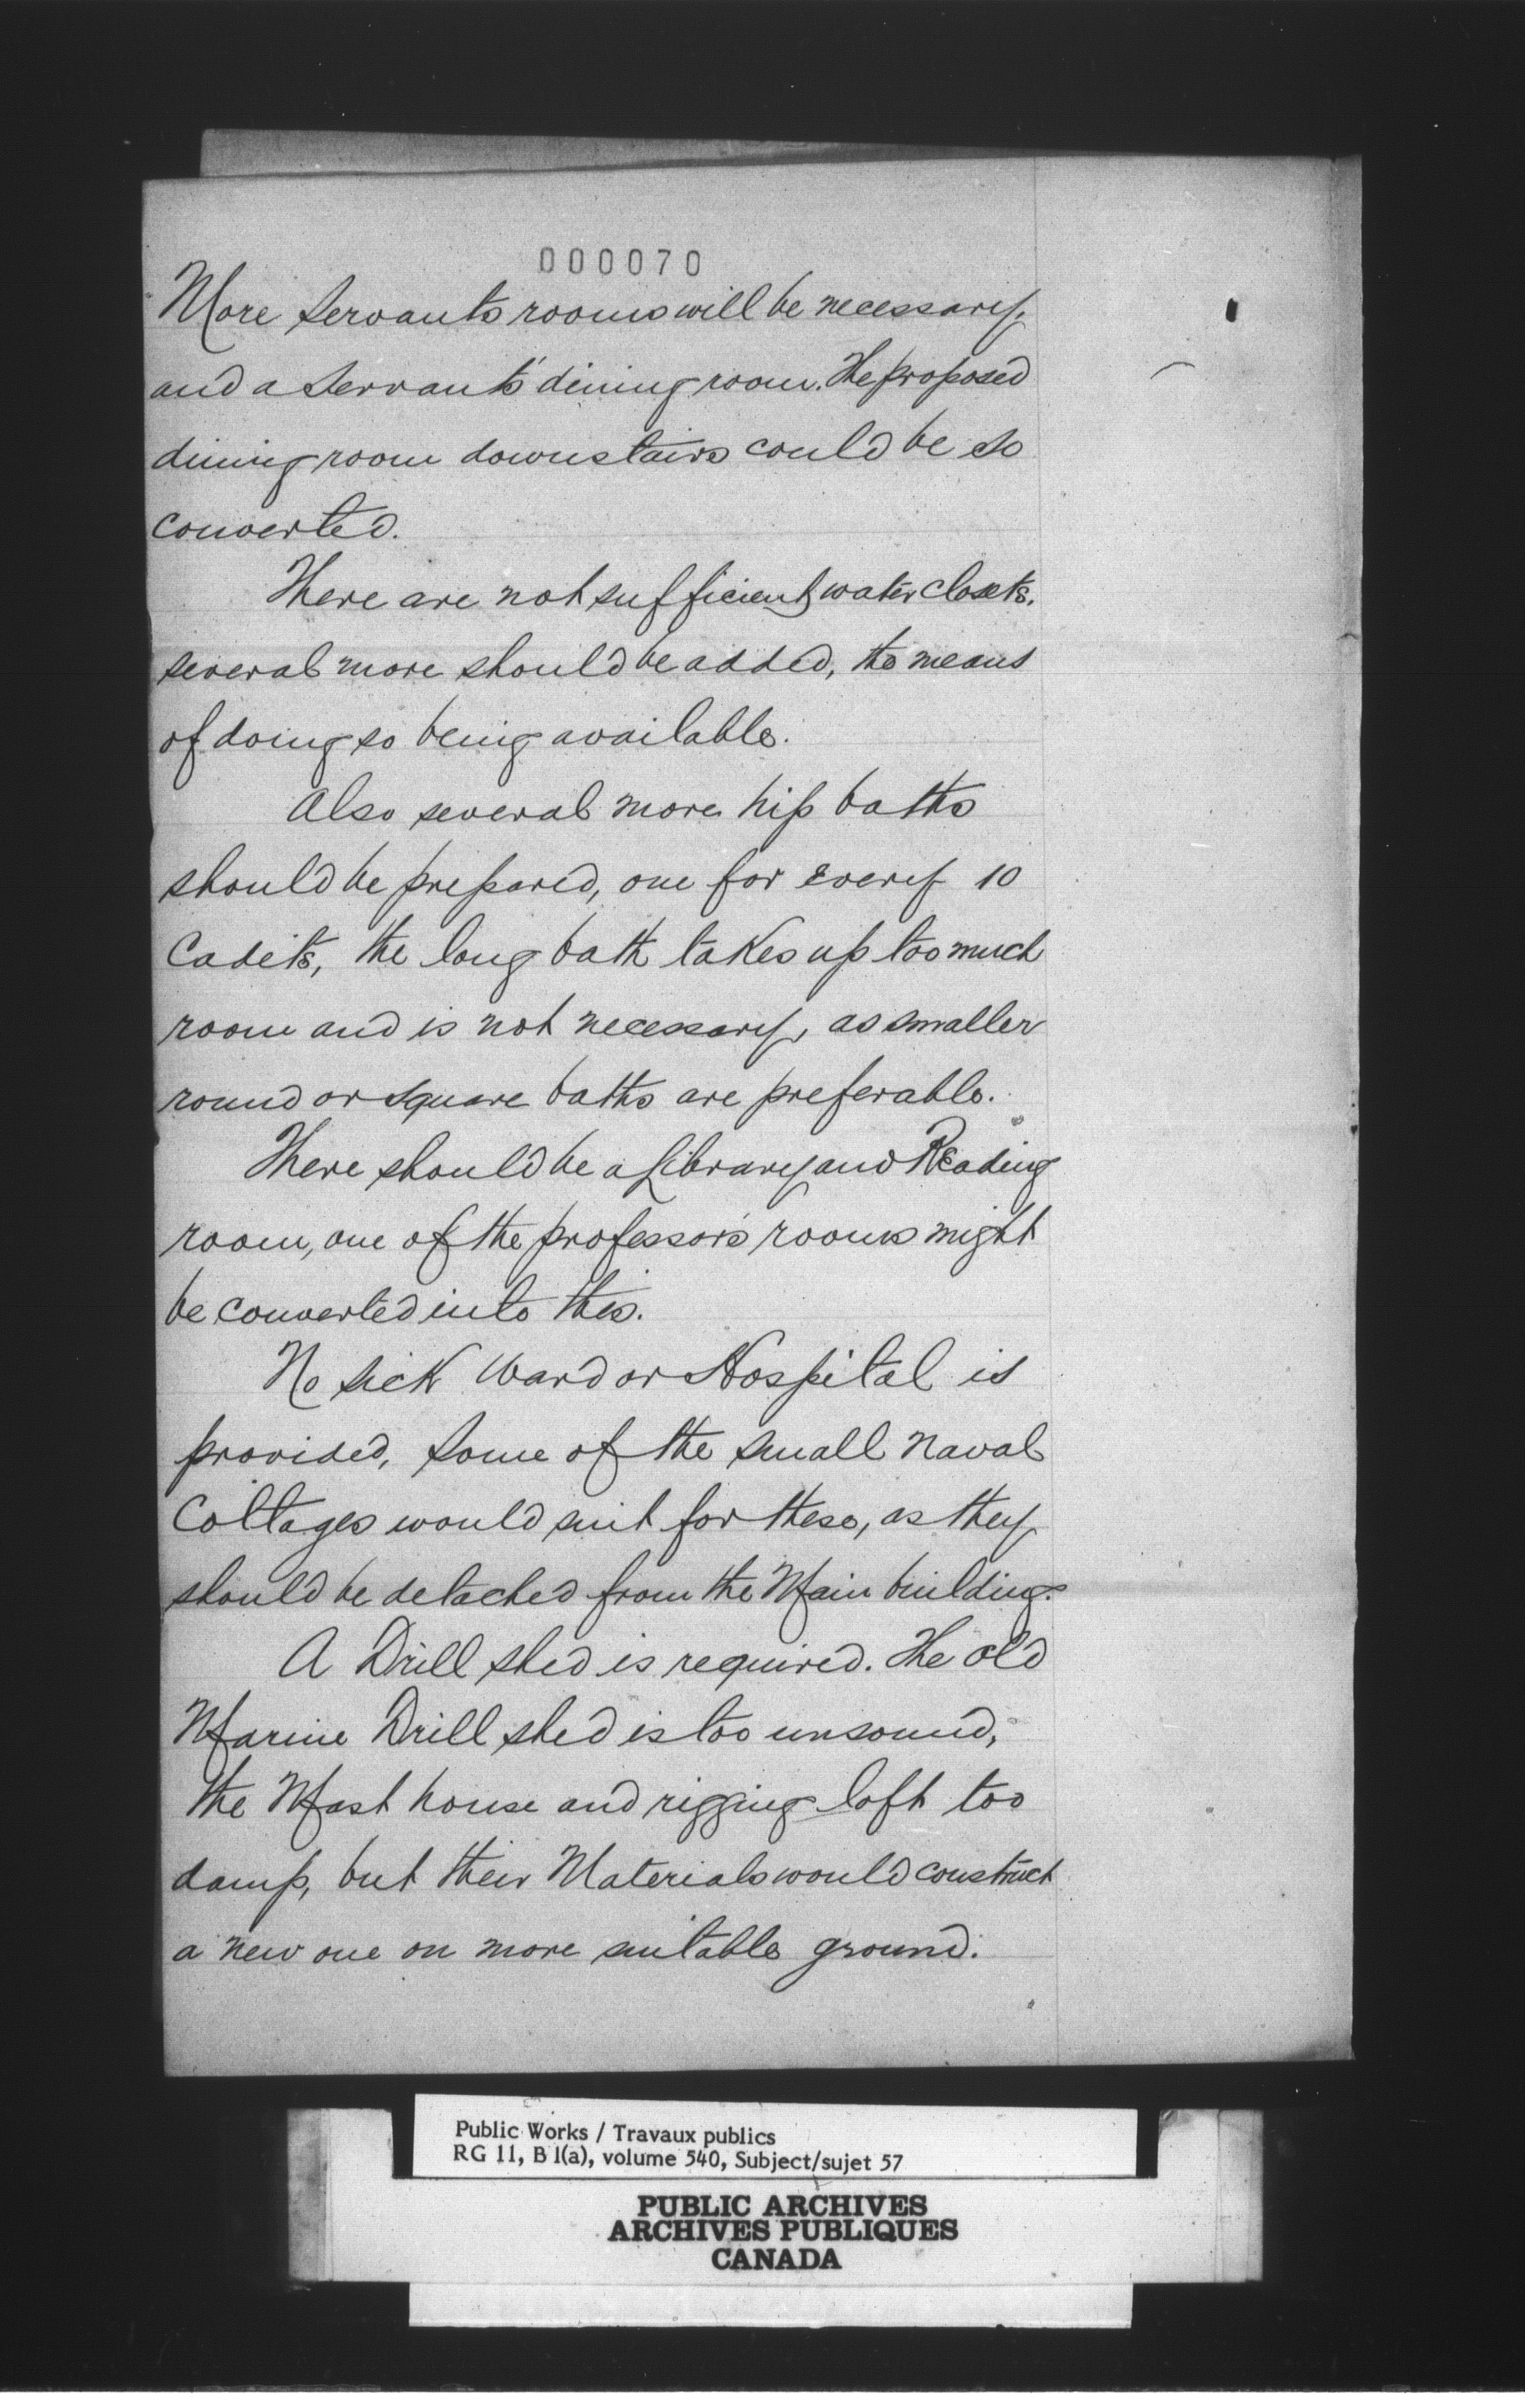 000070
More servants rooms will be necessary,
and a servants' dining room. The proposed
dining room downstairs could be so
converted.
There are not sufficient water closets,
several more should be added, the means
of doing so being available.
Also several more hip baths
should be prepared, one for every 10
Cadets, the long bath takes up too much
room and is not necessary, as smaller
round or square baths are preferable.
There should be a Library and Reading
room, one of the professors rooms might
be converted into this.
No sick ward or Hospital is
provided, some of the small naval
Cottages would suit for these, as they
should be detached from the Main building.
A Drill shed is required. The old
Marine Drill shed is too unsound,
the Mast house and rigging loft too
damp, but their Materials would construct
a new one on more suitable ground.
Public Works / Travaux publics
RG 11, B 1(a), volume 540, Subject/sujet 57
PUBLIC ARCHIVES
ARCHIVES PUBLIQUES
CANADA